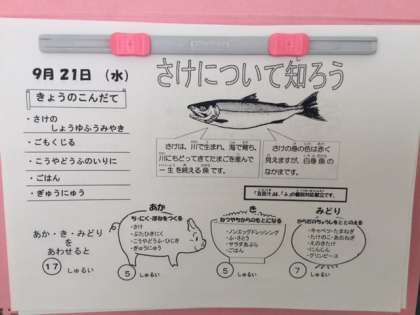 9月21日（水）
さけについて知ろう
きょうのこんだて
・さけの
しょうゆふうみやき
・ごもくじる
・こうやどうふのいりに
・ごはん
・ぎゅうにゅう
さけは、川で生まれ、海で育ち、
川にもどってきてたまごを産んで
一生を終える魚です。
さけの身の色は赤く
見えますが、白身魚の
なかまです。
あか
ち・にく・ほねをつくる
・さけ
・ぶたひきにく
・こうやどうふ・ひじき
・ぎゅうにゅう
5 しゅるい
き
ねつやちからのもとになる
・ノンエッグドレッシング
・ふ・さとう
・サラダあぶら
・ごはん
5 しゅるい
みどり
からだのちょうしをととのえる
・キャベツ・たまねぎ
・たけのこ・あおねぎ
・えのきたけ
・にんじん
・グリンピース
7 しゅるい
あか・き・みどり
をあわせると
17 しゅるい